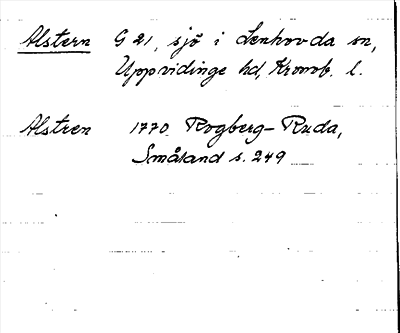 Alstern G 21, sjö i Lenhovda sn,
Uppvidinge hd, Kronob. l.
Alstren 1770 Rogberg-Ruda,
Småland s. 249